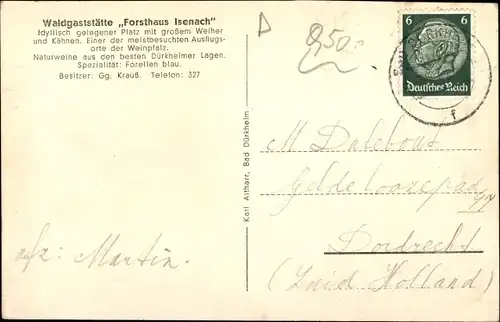 Waldgaststätte „Forsthaus Isenach"
Idyllisch gelegener Platz mit großem Weiher
und Kähnen. Einer der meistbesuchten Ausflugs-
orte der Weinpfalz.
Naturweine aus den besten Dürkheimer Lagen.
Spezialität: Forellen blau.
Besitzer: Gg. Krauß. Telefon: 327
D
8,50
6 6
Deutsches Reich
f
Karl Altharr, Bad Dürkheim
M Datebout
Geldeloozepad
Dordrecht
(Zuid Holland)
afz: Martin.